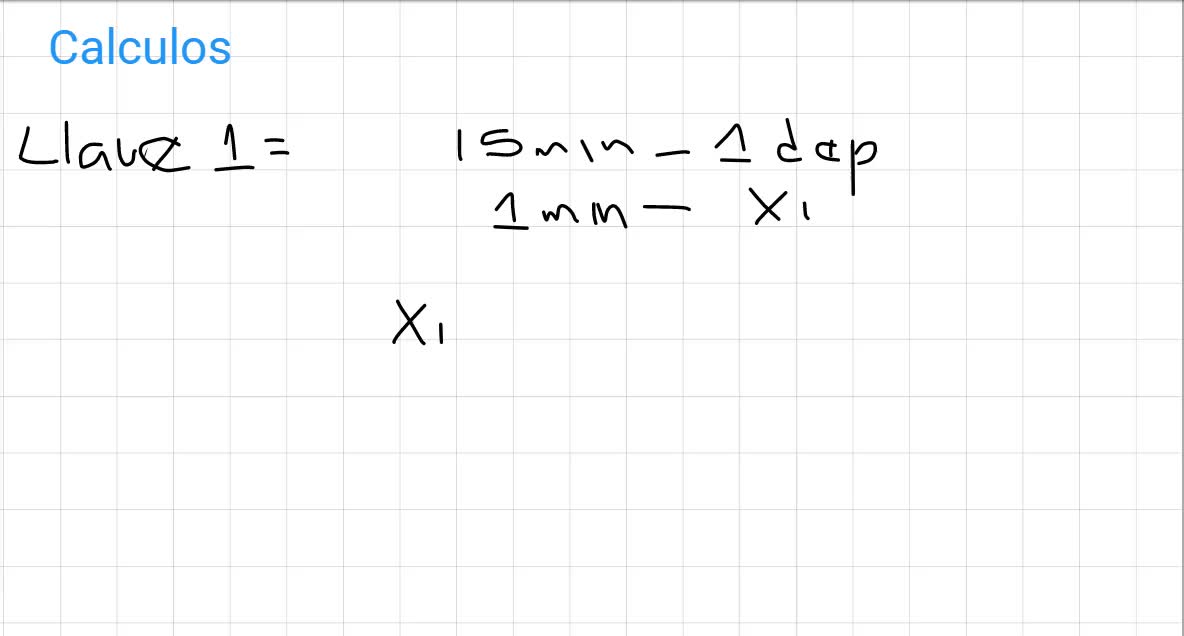 Calculos
Llave 1 = 15min - 1 dep
1 min - X1
X1